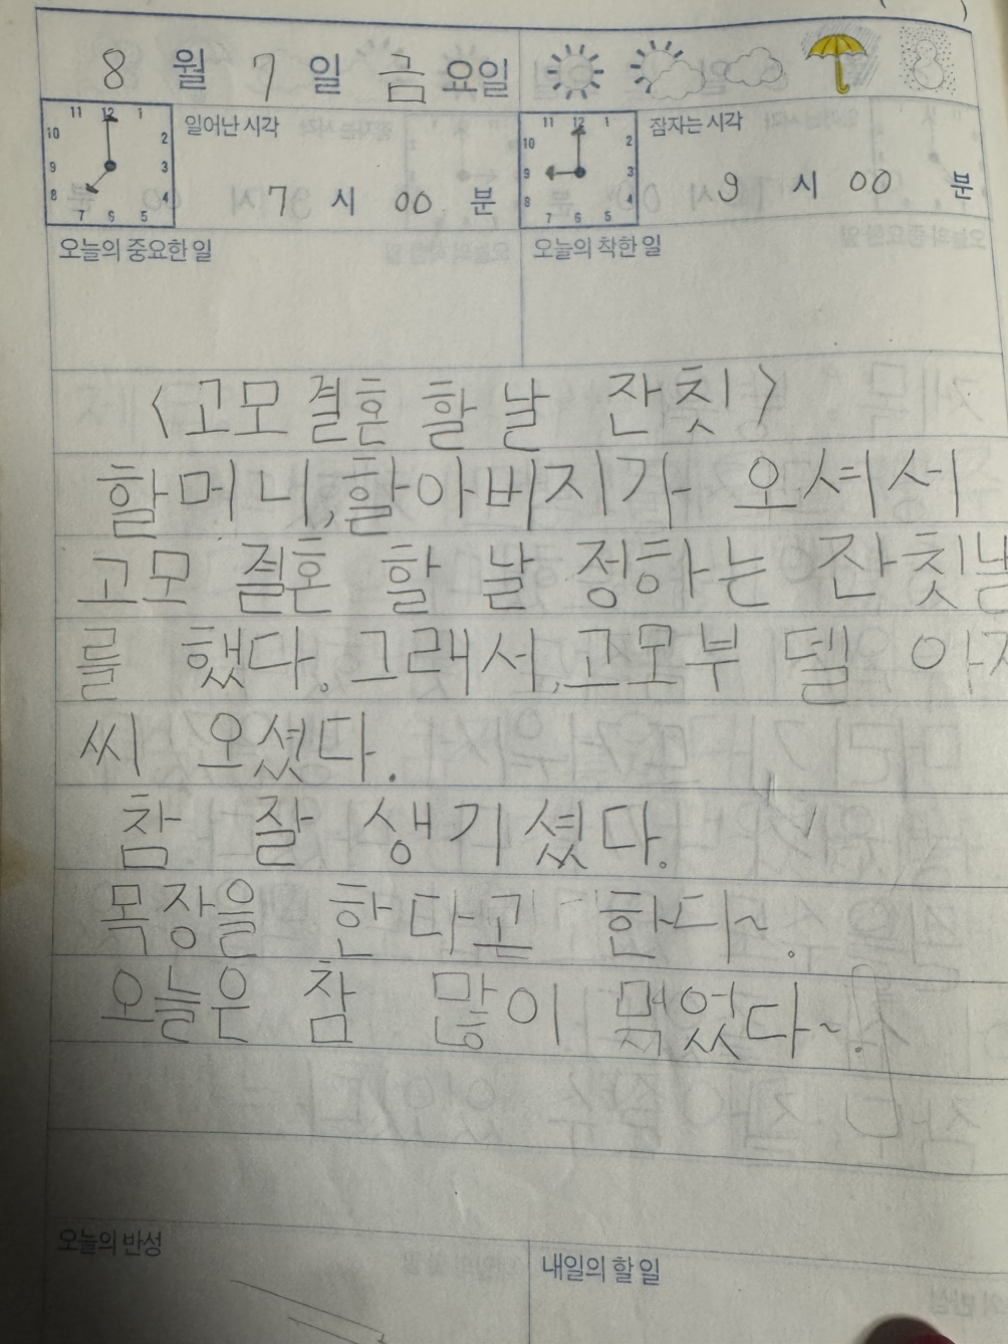 8 월 7 일 금 요일
11 12 1 10 2 9 3 8 4 7 6 5
일어난 시각
7 시 00 분
11 12 1 10 2 9 3 8 4 7 6 5
잠자는 시각
9 시 00 분
오늘의 중요한 일
오늘의 착한 일
<고모결혼 할 날 잔칫>
할머니,할아버지가 오셔서
고모 결혼 할 날 정하는 잔칫날
를 했다. 그래서,고모부 델 아저
씨 오셨다.
참 잘 생기셨다.
목장을 한다고 한다~.
오늘은 참 많이 먹었다~.
오늘의 반성
내일의 할 일